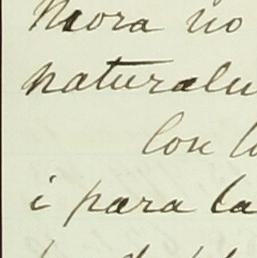 Mora no
naturalu
Con l
i para la